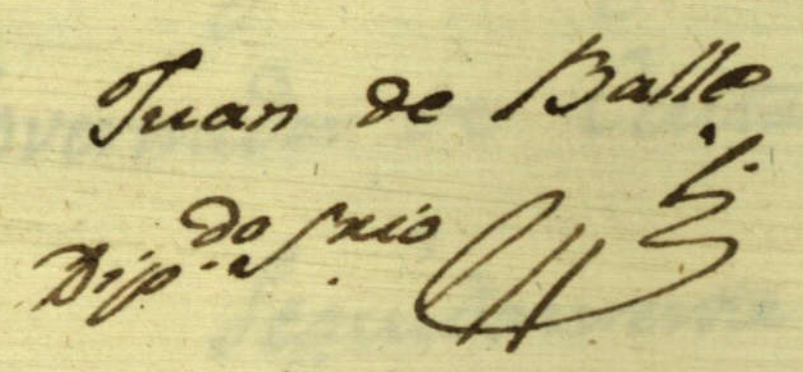 Juan de Balle
Dip.do Srio